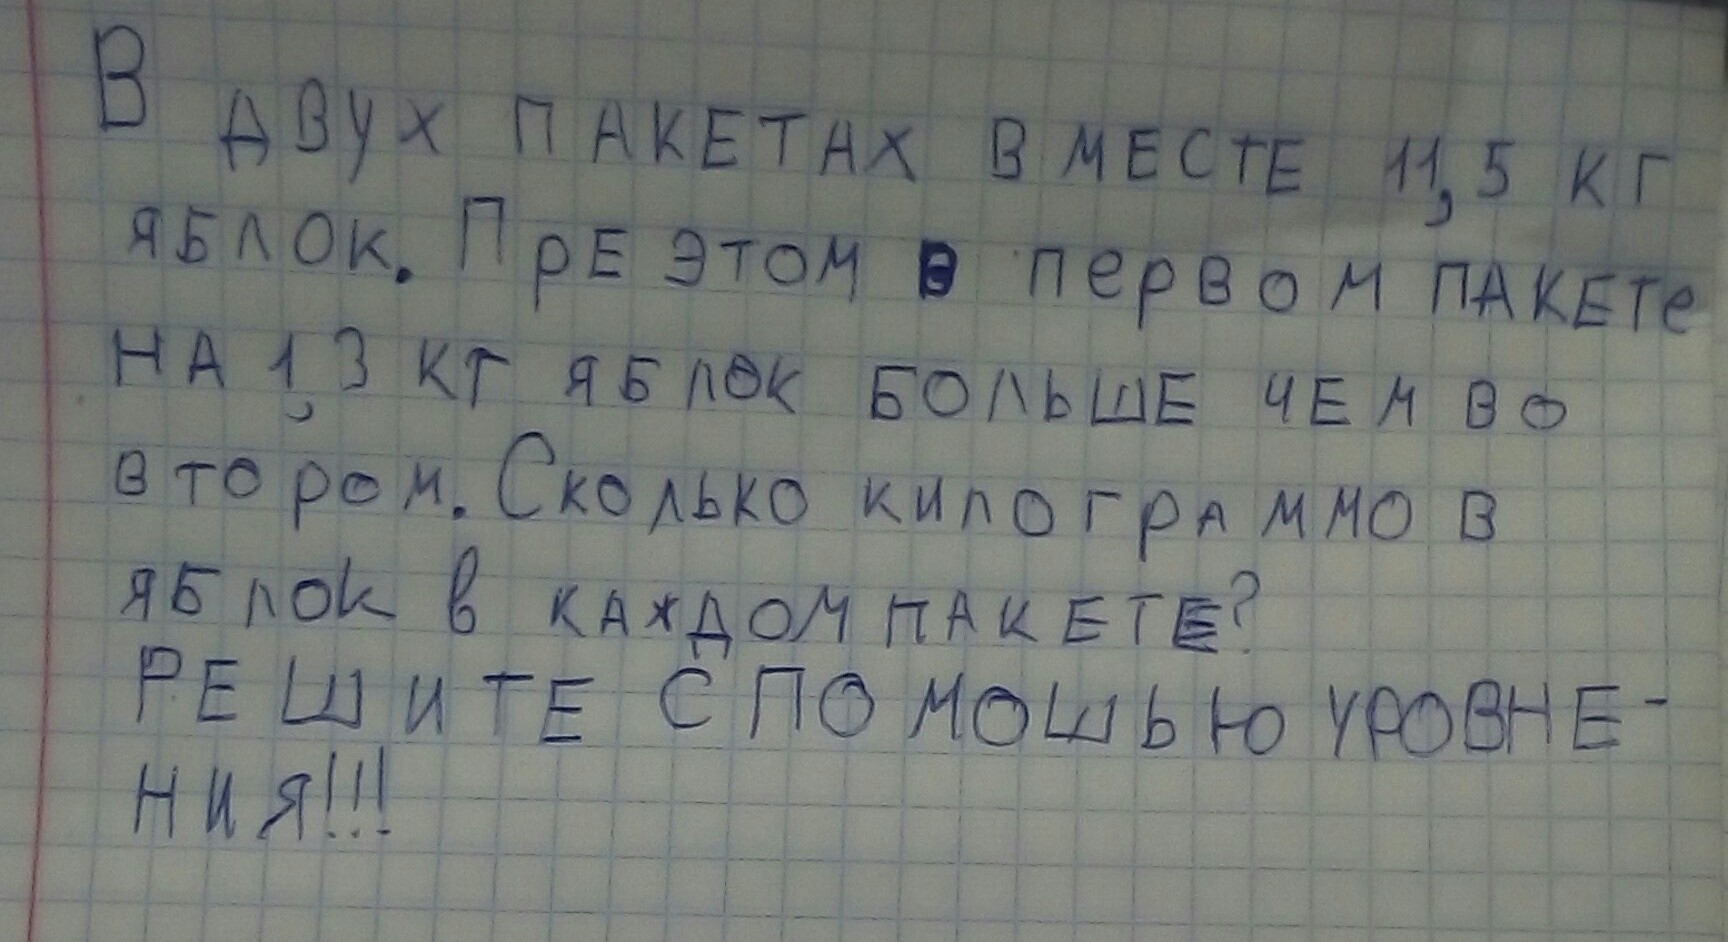 В ДВУХ ПАКЕТАХ ВМЕСТЕ 11,5 КГ
ЯБЛОК. ПРЕ ЭТОМ В ПЕРВОМ ПАКЕТЕ
НА 1,3 КГ ЯБЛОК БОЛЬШЕ ЧЕМ ВО
ВТОРОМ. СКОЛЬКО КИЛОГРАММОВ
ЯБЛОК В КАЖДОМ ПАКЕТЕ?
РЕШИТЕ С ПОМОШЬЮ УРОВНЕ-
НИЯ!!!